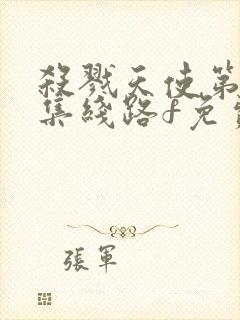 殺戮天使第
集綫路f免
張軍